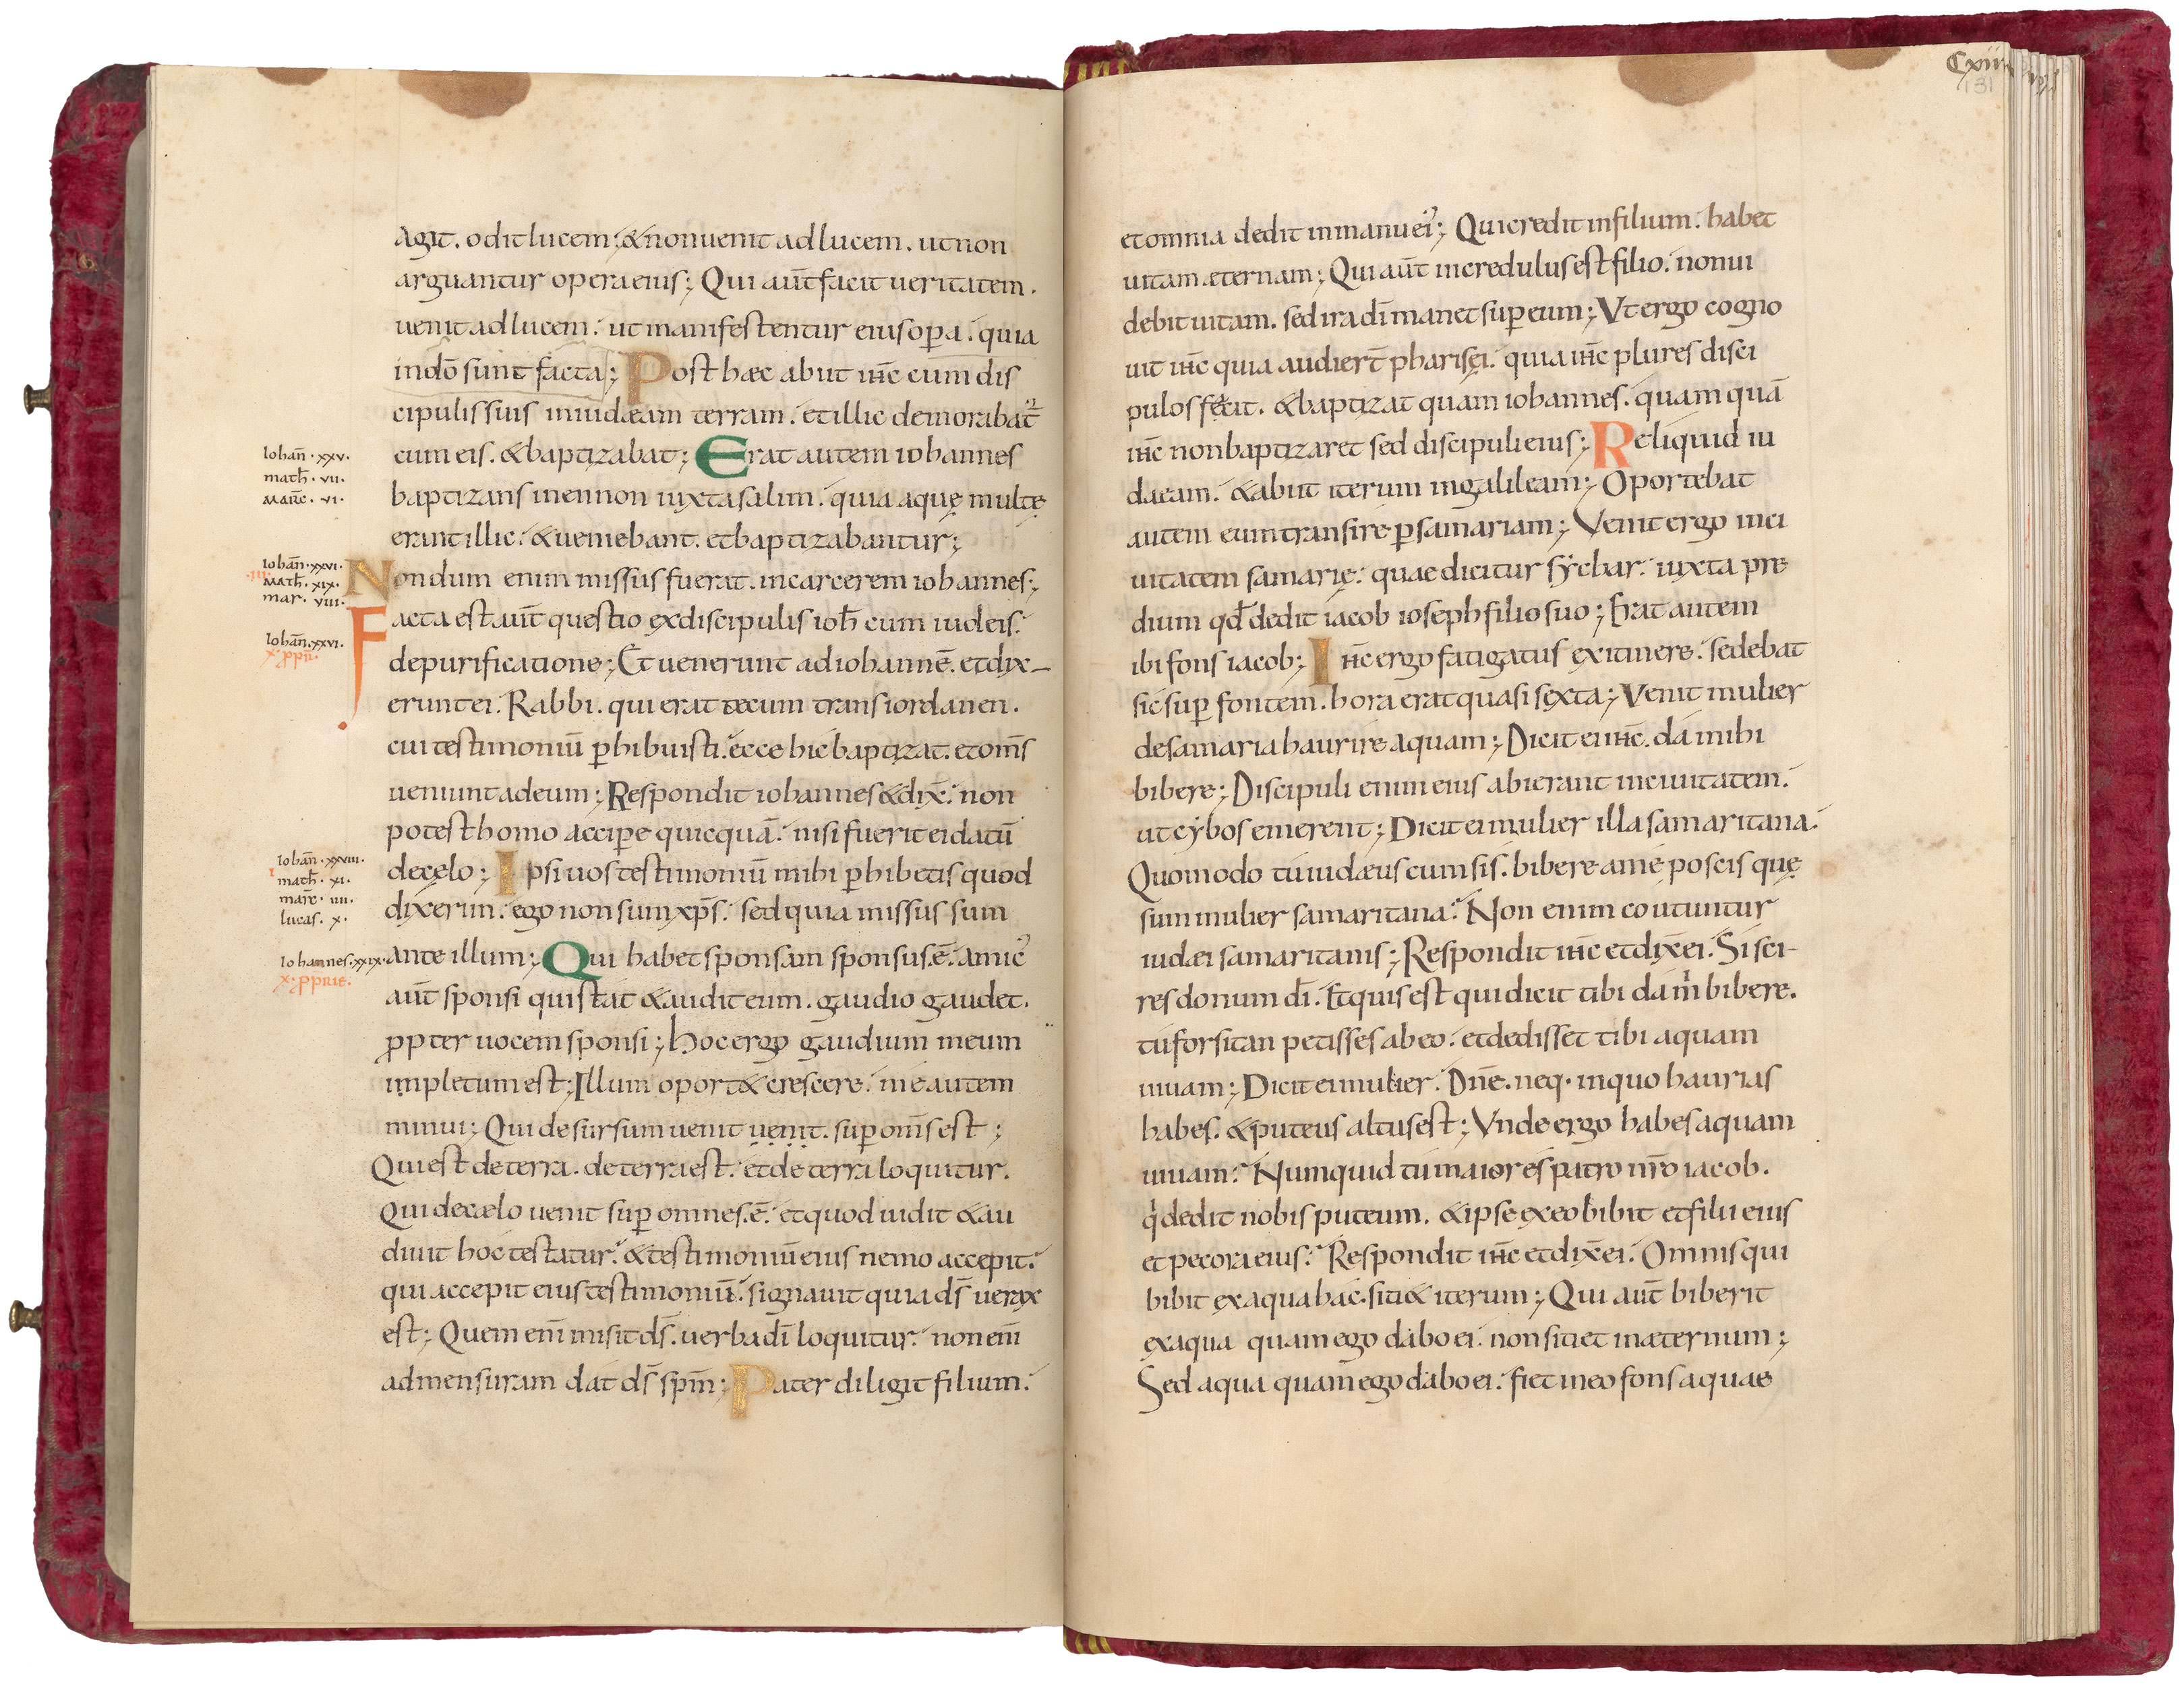 agit. odit lucem; & non uenit ad lucem. ut non
arguantur opera eius; Qui aut̄ facit ueritatem.
uenit ad lucem. ut manifestentur eius op̄a. quia
in dō sunt facta; Post haec abiit ih̄c cum dis
cipulis suis in iudæam terram. et illic demorabat᷒
cum eis. & baptizabat; Erat autem iohannes
Iohan̄. xxv.
math̄. vii.
marc̄. vi.
baptizans in ennon iuxta salim. quia aquę multę
erant illic. & ueniebant. et baptizabantur;
Iohan̄. xxvi.
.iii.
math̄. xix.
mar. viii.
Nondum enim missus fuerat. in carcerem iohannes;
Facta est aut̄ questio ex discipulis ioh̄ cum iudeis.
Iohan̄. xxvi.
x. ꝓpri.
de purificatione; Et uenerunt ad iohannē. et dix-
erunt ei. Rabbi. qui erat tecum trans iordanen.
cui testimoniū ꝑhibuisti. ecce hic baptizat. et om̄s
ueniunt ad eum; Respondit iohannes & dix̄. non
potest homo accipe quicquā. nisi fuerit ei datū
Iohan̄. xxviii.
i
math̄. xi.
marc̄. iiii.
lucas. x.
de cęlo; Ipsi uos testimoniū mihi ꝑhibetis quod
dixerim. ego non sum xp̄s. sed quia missus sum
Iohannes. xxix.
x. ꝓprie.
ante illum; Qui habet sponsam sponsus. ē. amic᷒
aut̄ sponsi qui stat & audit eum. gaudio gaudet.
ꝓpter uocem sponsi; hoc ergo gaudium meum
impletum est; Illum oport& crescere. me autem
minui; Qui desursum uenit uenit. suꝑ om̄s est;
Qui est de terra. de terra est. et de terra loquitur.
Qui de cælo uenit suꝑ omnes. ē. et quod uidit & au
diuit hoc testatur. & testimoniū eius nemo accepit.
qui accepit eius testimoniū. signauit quia d̄s uerax
est; Quem eni᷒ misit d̄s. uerba dī loquitur. non eni᷒
ad mensuram dat d̄s sp̄m; Pater diligit filium.
Cxiii
131
et omnia dedit in manu ei᷒; Qui credit in filium. habet
uitam eternam; Qui aut̄ incredulus est filio. non ui
debit uitam. sed ira dī manet suꝑ eum; Vt ergo cogno
uit ih̄c quia audiert̄ pharisęi. quia ih̄c plures disci
pulos fecit. & baptizat quam iohannes. quam quā
ih̄c non baptizaret sed discipuli eius; Reliquid iu
daeam. & abiit iterum in galileam; Oportebat
autem eum transire ꝑ samariam; Venit ergo in ci
uitatem samarię. quae dicitur sychar. iuxta pre
dium qd̄ dedit iacob ioseph filio suo; Erat autem
ibi fons iacob; Ih̄c ergo fatigatus ex itinere. sedebat
sic suꝑ fontem. hora erat quasi sexta; Venit mulier
de samaria haurire aquam; Dicit ei ih̄c. da mihi
bibere; Discipuli enim eius abierant in ciuitatem.
ut cybos emerent; Dicit ei mulier illa samaritana.
Quomodo tu iudæus cum sis. bibere a me poscis quę
sum mulier samaritana. Non enim coutuntur
iudæi samaritanis; Respondit ih̄c et dix̄ ei. Si sci-
res donum dī. Et quis est qui dicit tibi da mi bibere.
tu forsitan petisses ab eo. et dedisset tibi aquam
uiuam; Dicit ei mulier. Dn̄e. neq. in quo haurias
habes. & puteus altus est; Vnde ergo habes aquam
uiuam. Numquid tu maior es patro nr̄o iacob.
qi dedit nobis puteum. & ipse ex eo bibit et filii eius
et pecora eius. Respondit ih̄c et dix̄ ei. Omnis qui
bibit ex aqua hac. siti& iterum; Qui aut̄ biberit
ex aqua quam ego dabo ei. non sitiet in æternum;
Sed aqua quam ego dabo ei. fiet in eo fons aquae